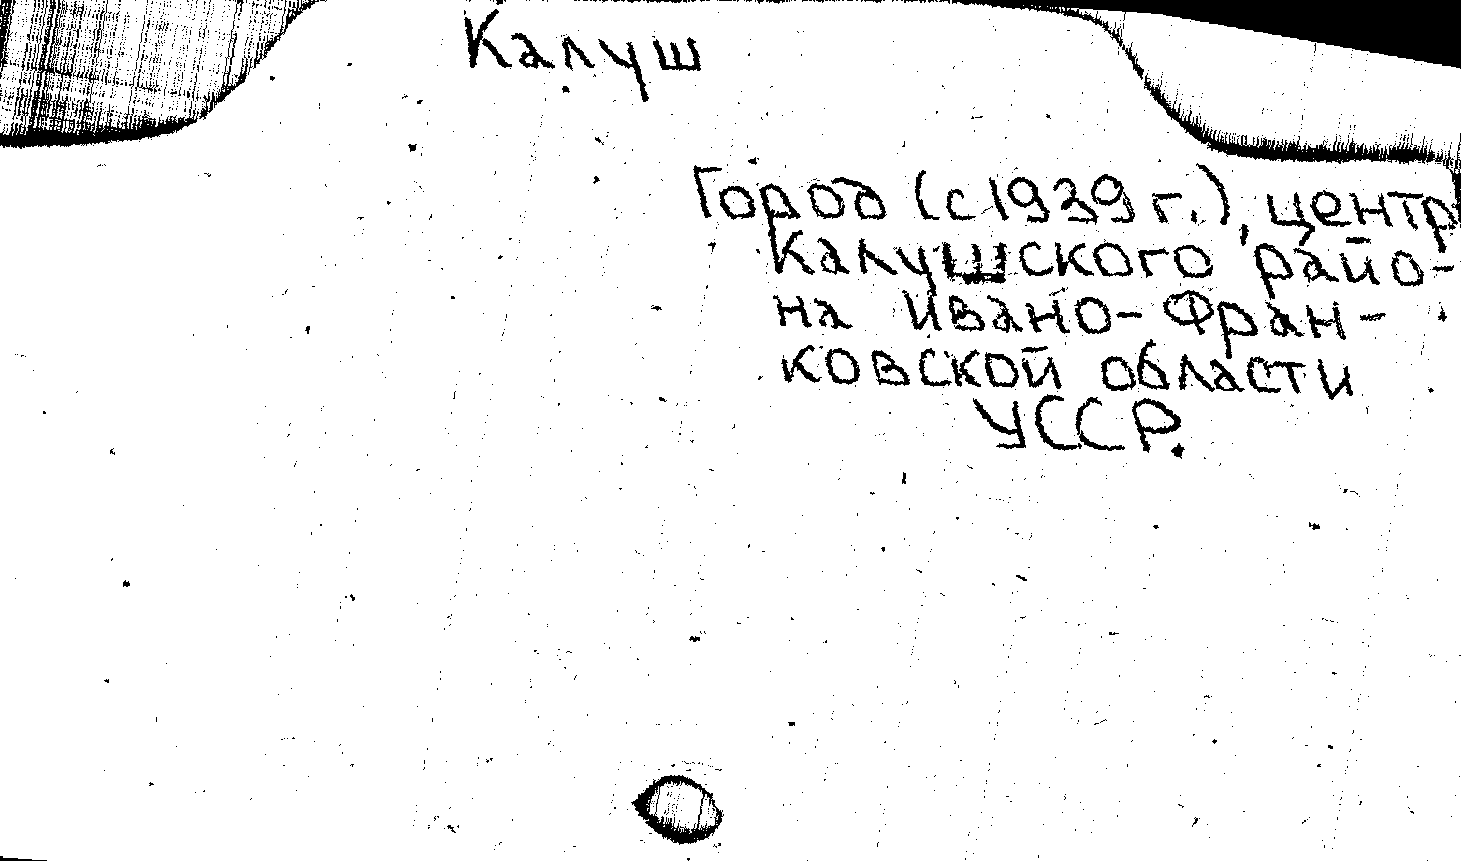 Калуш
Город (с 1939 г.), центр
Калушского райо-
на Ивано-Фран-
ковской области
УССР.